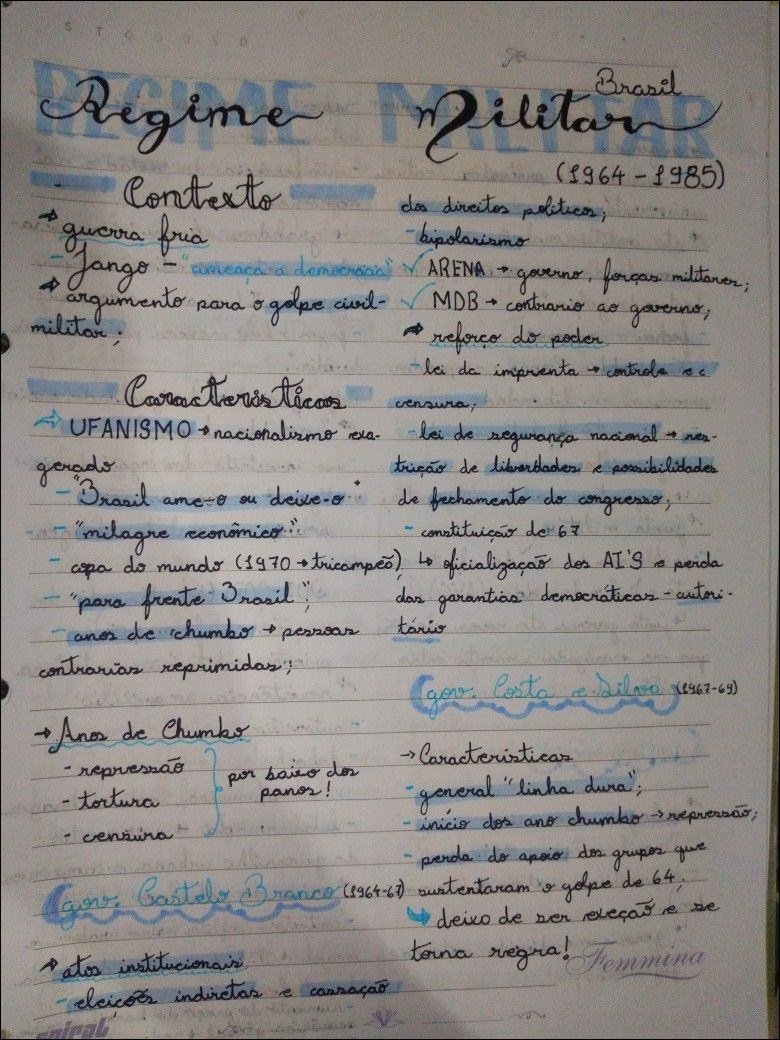 Brasil
REGIME MILITAR
Regime Militar
(1964-1985)
Contexto
→ guerra fria
- Jango - "ameaça a democracia"
→ argumento para o golpe civil-
militar;
Características
→ UFANISMO → nacionalismo exa-
gerado
- "Brasil ame-o ou deixe-o"
- "milagre econômico"
- copa do mundo (1970 → tricampeão)
- "para frente Brasil";
- anos de chumbo → pessoas
contrarias reprimidas;
→ Anos de Chumbo
- repressão
- tortura
- censura
por baixo dos
panos!
gov. Castelo Branco (1964-67)
→ atos institucionais
- eleições indiretas e cassação
dos direitos politicos;
- bipolarismo
✓ ARENA → governo, forças militares;
✓ MDB → contrario ao governo;
→ reforço do poder
- lei da imprenta → controle e c
censura;
- lei de segurança nacional → res-
trição de liberdades e possibilidades
de fechamento do congresso;
- constituição de 67
↳ oficialização dos AI'S e perda
das garantias democráticas - autori-
tário
gov. Costa e Silva (1967-69)
→ Características
- general "linha dura";
- início dos ano chumbo → repressão;
- perda do apoio dos grupos que
sustentaram o golpe de 64;
↳ deixo de ser exeção e se
torna regra!
Femmina
spiral